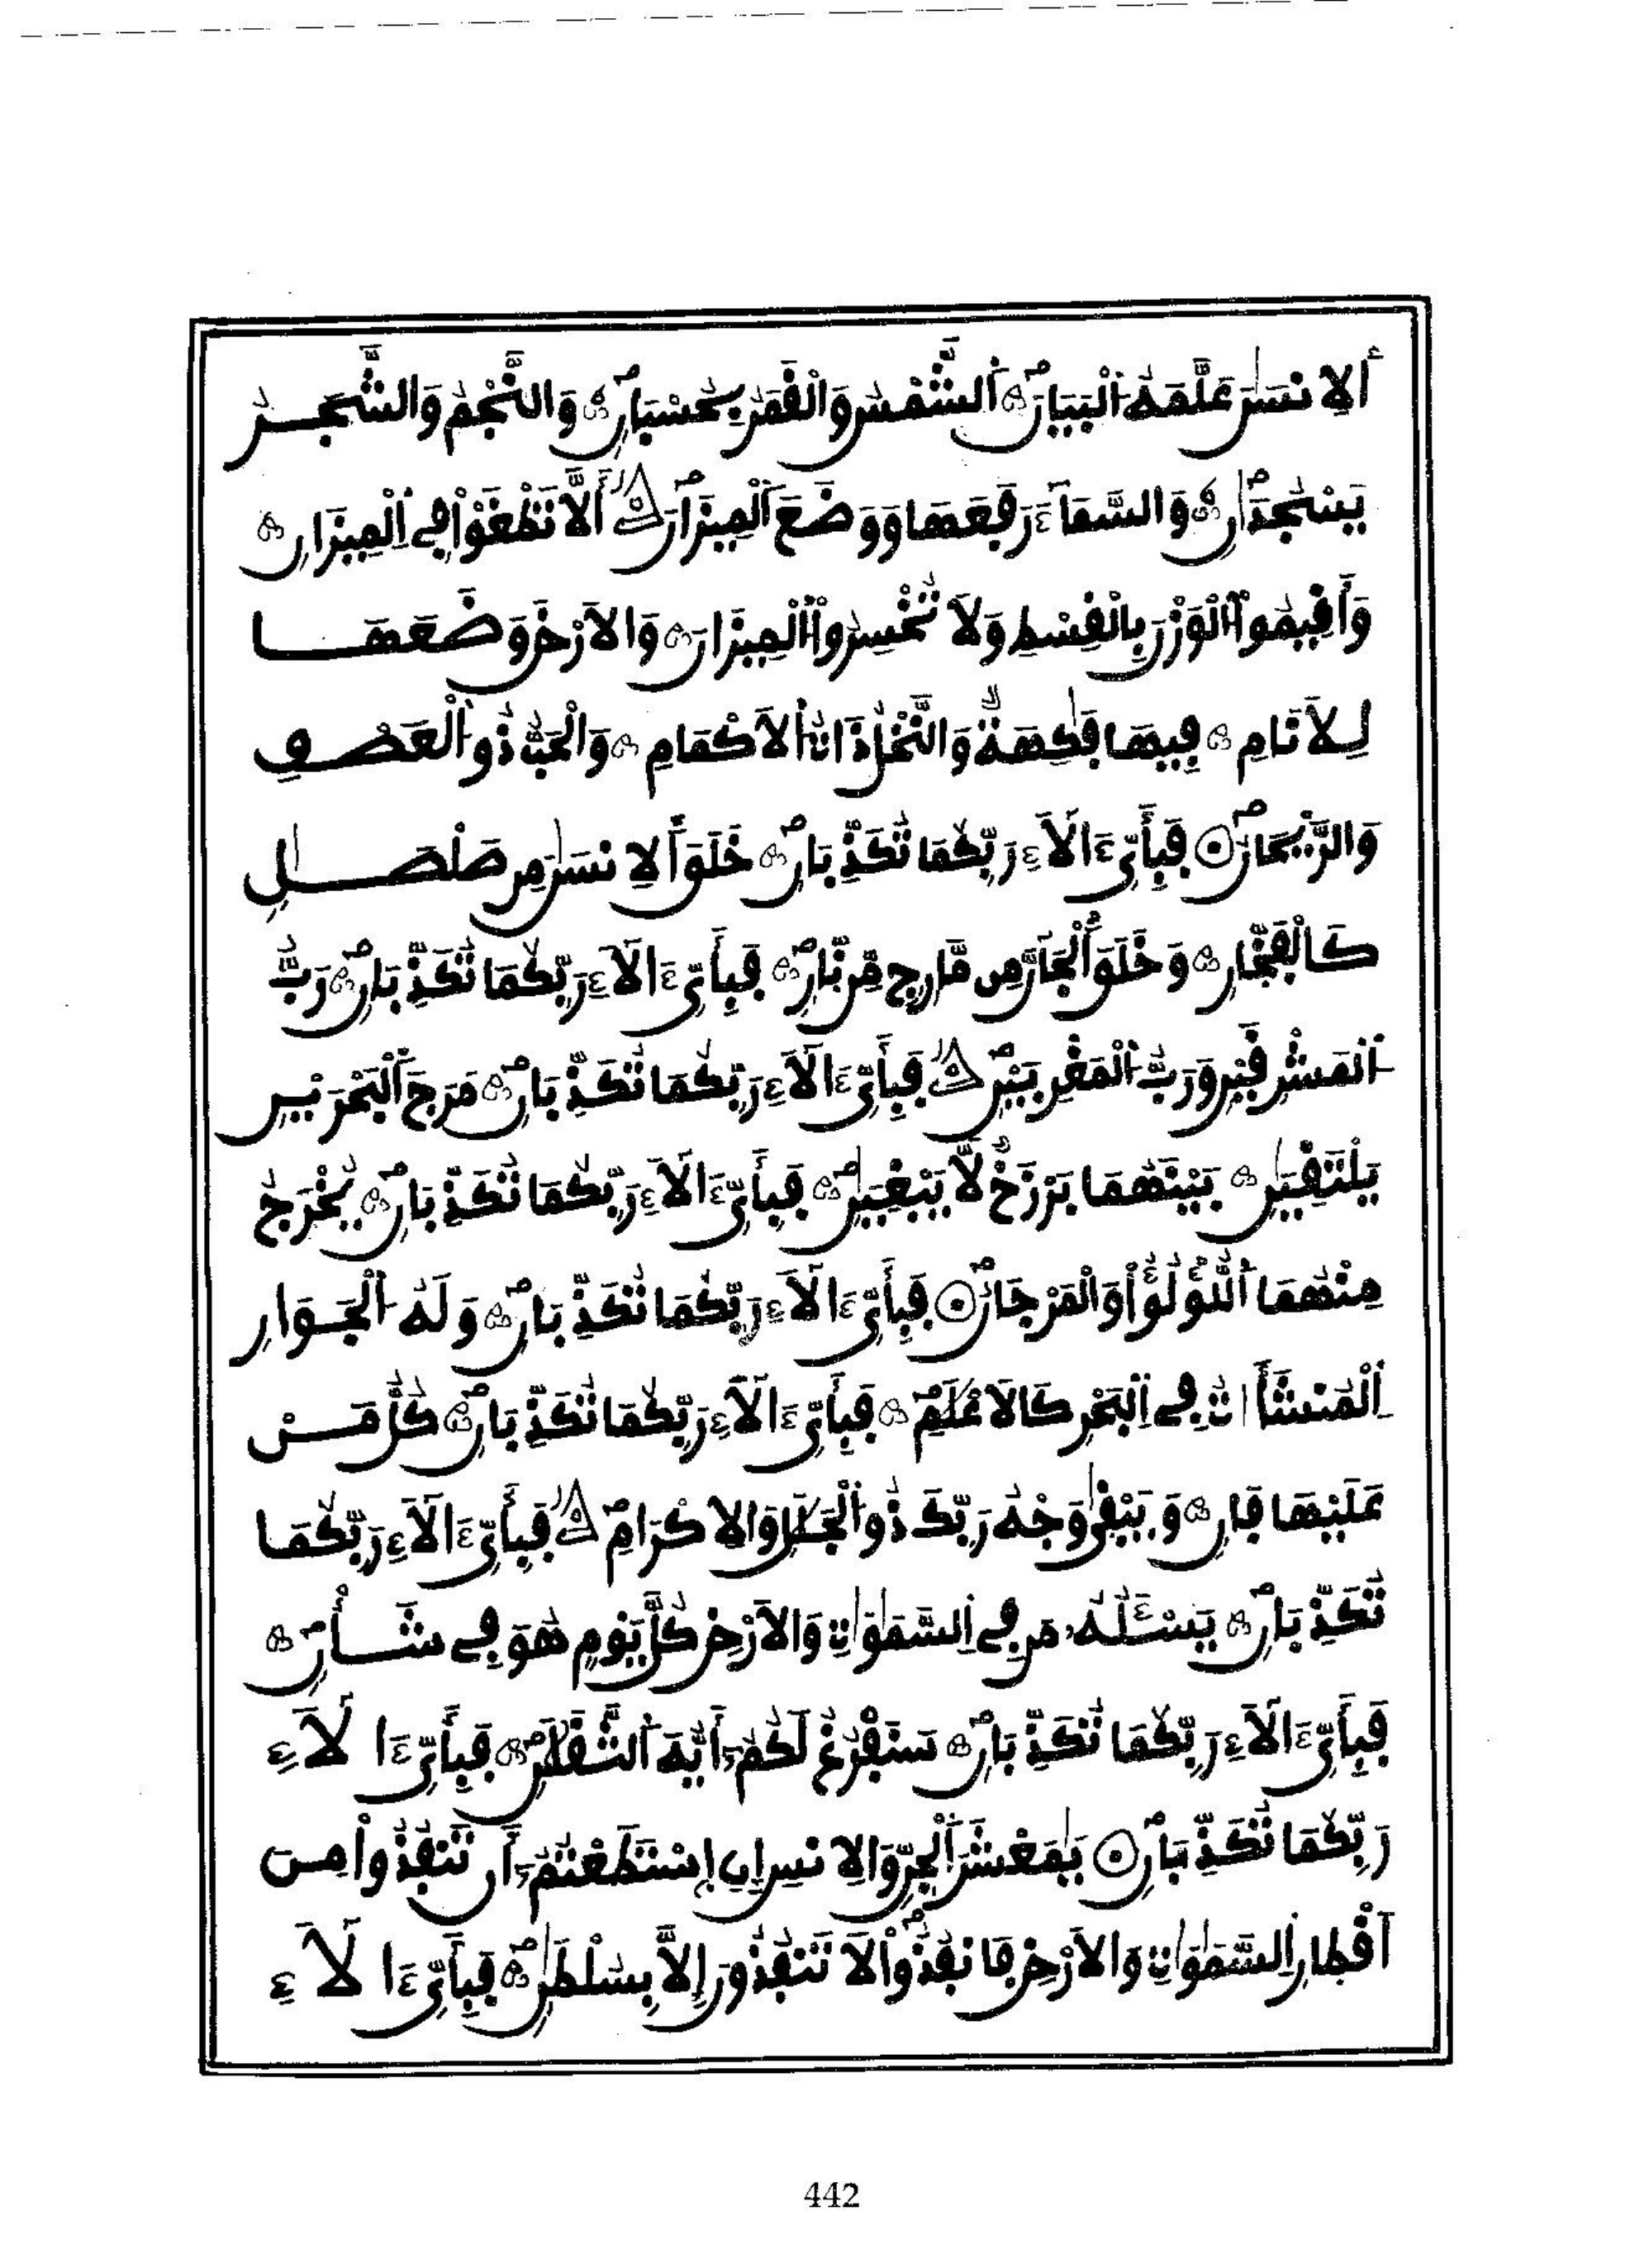 اَلِانسَٰنَ عَلَّمَهُ اُلْبَيَانَ ۝ اَلشَّمْسُ وَالْقَمَرُ بِحُسْبَانٍ ۝ وَالنَّجْمُ وَالشَّجَرُ
يَسْجُدَانِ ۝ وَالسَّمَآءَ رَفَعَهَا وَوَضَعَ اَلْمِيزَانَ ۝ أَلَّا تَطْغَوْاْ فِے اِلْمِيزَانِ ۝
وَأَقِيمُواْ اُلْوَزْنَ بِالْقِسْطِ وَلَا تُخْسِرُواْ اُلْمِيزَانَ ۝ وَالَارْضَ وَضَعَهَا
لِلَانَامِ ۝ فِيهَا فَٰكِهَةٌ وَالنَّخْلُ ذَاتُ اُلَاكْمَامِ ۝ وَالْحَبُّ ذُو اُلْعَصْفِ
وَالرَّيْحَانُ ۝ فَبِأَيِّ ءَالَآءِ رَبِّكُمَا تُكَذِّبَانِ ۝ خَلَقَ اَلِانسَٰنَ مِن صَلْصَٰلٍ
كَالْفَخّارِ ۝ وَخَلَقَ اَلْجَآنَّ مِن مَّارِجٍ مِّن نّارٍ ۝ فَبِأَيِّ ءَالَآءِ رَبِّكُمَا تُكَذِّبَانِ ۝ رَبُّ
اُلْمَشْرِقَيْنِ وَرَبُّ اُلْمَغْرِبَيْنِ ۝ فَبِأَيِّ ءَالَآءِ رَبِّكُمَا تُكَذِّبَانِ ۝ مَرَجَ اَلْبَحْرَيْنِ
يَلْتَقِيَٰنِ ۝ بَيْنَهُمَا بَرْزَخٌ لَّا يَبْغِيَٰنِ ۝ فَبِأَيِّ ءَالَآءِ رَبِّكُمَا تُكَذِّبَانِ ۝ يُخْرَجُ
مِنْهُمَا اَللُّؤْلُؤُاْ وَالْمَرْجَانُ ۝ فَبِأَيِّ ءَالَآءِ رَبِّكُمَا تُكَذِّبَانِ ۝ وَلَهُ اُلْجَوَارِ
اِلْمُنشَأَاتُ فِے اِلْبَحْرِ كَالَاعْلَٰمِ ۝ فَبِأَيِّ ءَالَآءِ رَبِّكُمَا تُكَذِّبَانِ ۝ كُلُّ مَنْ
عَلَيْهَا فَانٍ ۝ وَيَبْقَىٰ وَجْهُ رَبِّكَ ذُو اُلْجَلَٰلِ وَالِاكْرَامِ ۝ فَبِأَيِّ ءَالَآءِ رَبِّكُمَا
تُكَذِّبَانِ ۝ يَسْـَٔلُهُۥ مَن فِے اِلسَّمَٰوَٰتِ وَالَارْضِ كُلَّ يَوْمٍ هُوَ فِے شَأْنٍ ۝
فَبِأَيِّ ءَالَآءِ رَبِّكُمَا تُكَذِّبَانِ ۝ سَنَفْرُغُ لَكُمُۥٓ أَيُّهَ اَلثَّقَلَٰنِ ۝ فَبِأَيِّ ءَالَآءِ
رَبِّكُمَا تُكَذِّبَانِ ۝ يَٰمَعْشَرَ اَلْجِنِّ وَالِانسِ إِنِ اِسْتَطَعْتُمُۥٓ أَن تَنفُذُواْ مِنَ
اَقْطارِ اِلسَّمَٰوَٰتِ وَالَارْضِ فَانفُذُواْ لَا تَنفُذُونَ إِلَّا بِسُلْطَٰنٍ ۝ فَبِأَيِّ ءَالَآءِ
442